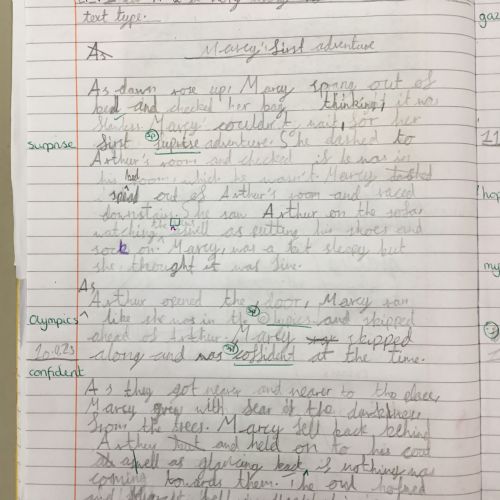 text type.
As Marcy's first adventure
As dawn rose up, Marcy sprang out of
bed and checked her bag thinking, it was
Marcy couldn't wait, for her
Surprise first suprise adventure. She dashed to
Arthur's room and checked if he was in
his bed room, which he wasn't. Marcy
out of Arthur's room and raced
downstairs. She saw Arthur on the sofa,
watching the news as well as putting his shoes and
sock on. Marcy, was a bit sleepy but
she thought it was fine.
As
Arthur opened the door, Marcy ran
Olympics like she was in the Olypics and skipped
ahead of Arthur. Marcy skipped
10.0.23 along and was coffident at the time.
confident
As they got nearer and nearer to the place,
Marcy grew with fear of the darkness
from the trees. Marcy fell back behind
Arther and held on to his coat
as well as glancing back if nothing was
coming towards them. The owl hooted
and
gaz
11
hop
my